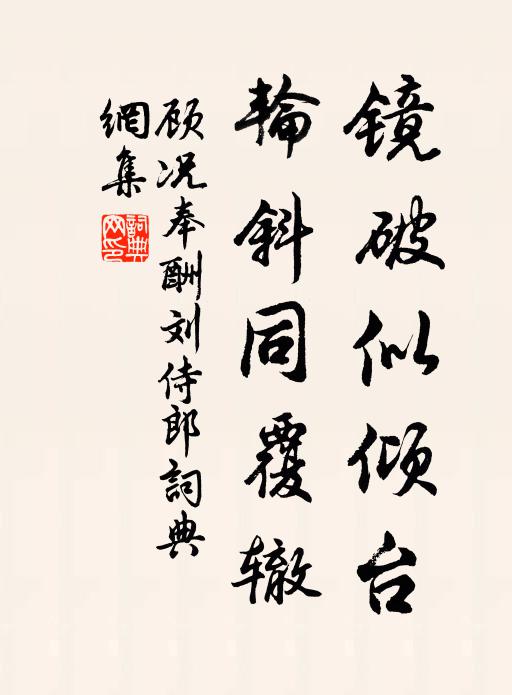 镜破似倾台
輪斜同覆辙
顾况奉酬刘侍郎詞典
網集
詞典
网印